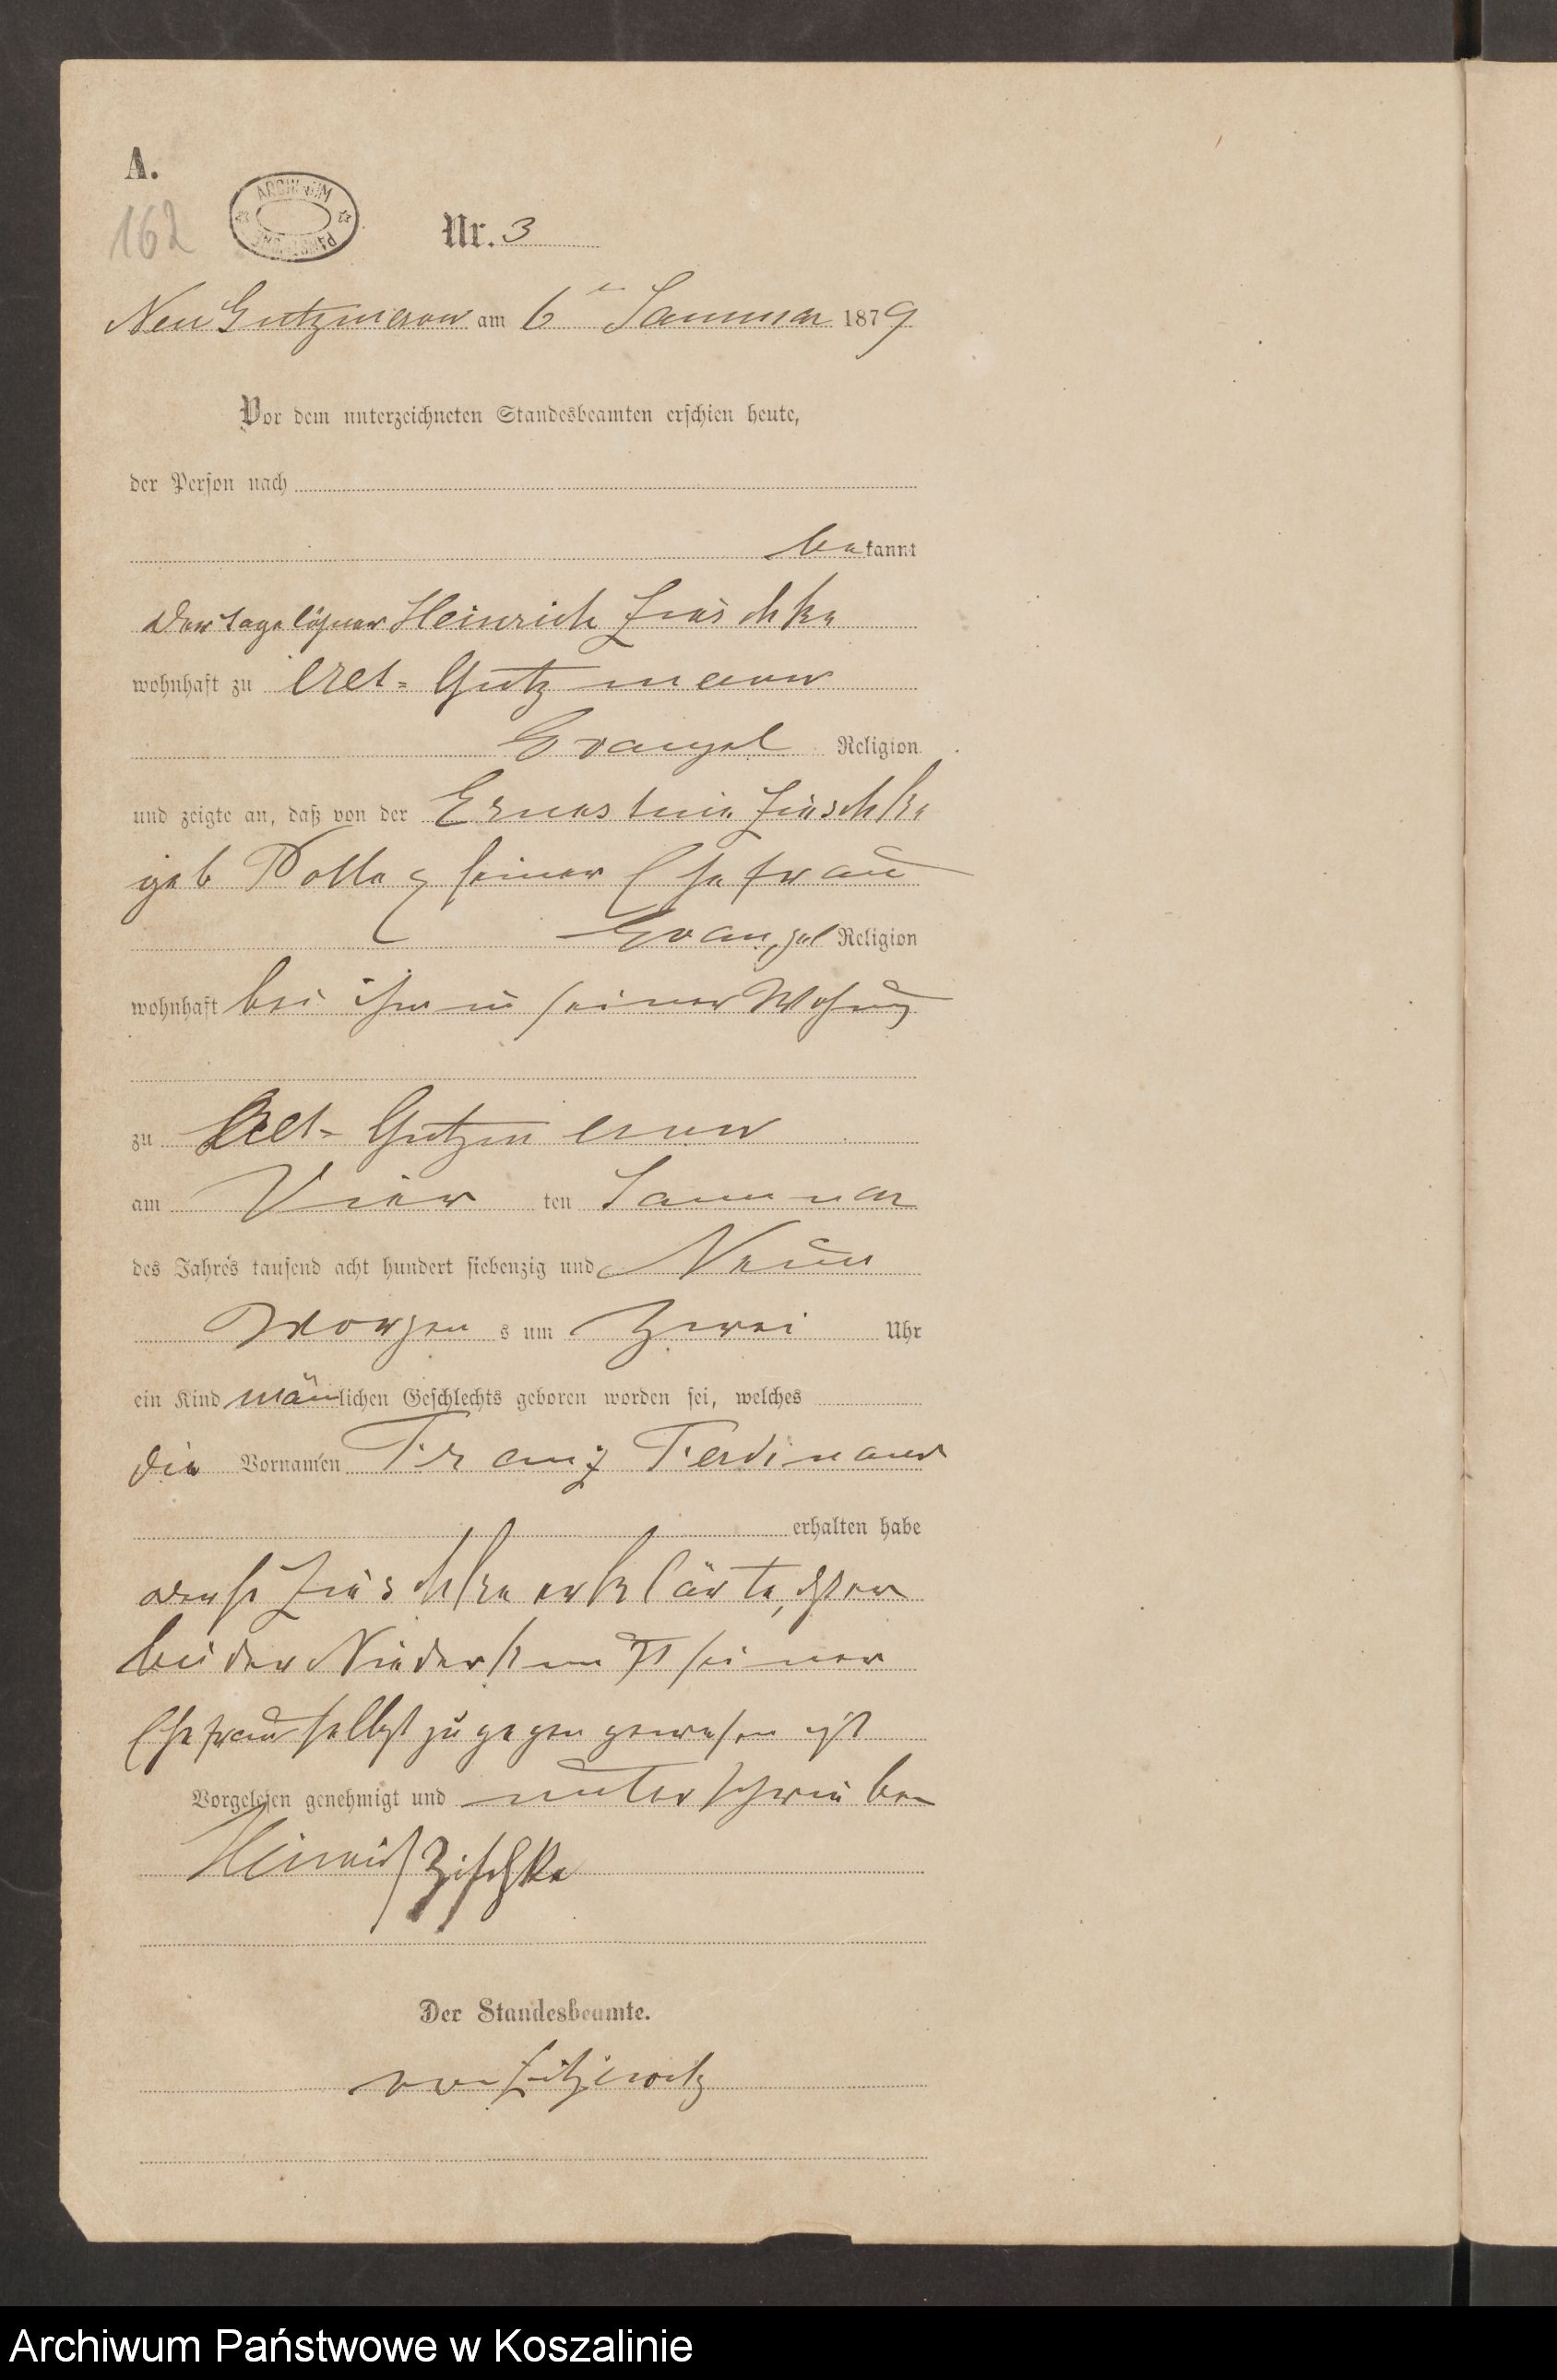 A.
162
ARCHIWUM PAŃSTWOWE
Nr. 3
Neu Gutzmerow am 6ten Januar 1879
Vor dem unterzeichneten Standesbeamten erschien heute,
der Person nach
bekannt
der Tagelöhner Heinrich Zieschke
wohnhaft zu Alt-Gutzmerow
Evangel Religion
und zeigte an, daß von der Ernestine Zieschke
geb seiner Ehefrau
Evangel Religion
wohnhaft bei ihm in seiner Wohung
zu Alt-Gutzmerow
am Vier ten Januar
des Jahres tausend acht hundert siebenzig und Neun
Morgen s um Zwei Uhr
ein Kind mänlichen Geschlechts geboren worden sei, welches
die Vornamen Franz Ferdinand
erhalten habe
Zieschke erklärte, daß er
bei der Niederkunft seiner
Ehefrau selbst zugegen gewesen ist
Vorgelesen genehmigt und unterschrieben
Heinrich Zischke
Der Standesbeamte.
von Zitzewitz
Archiwum Państwowe w Koszalinie